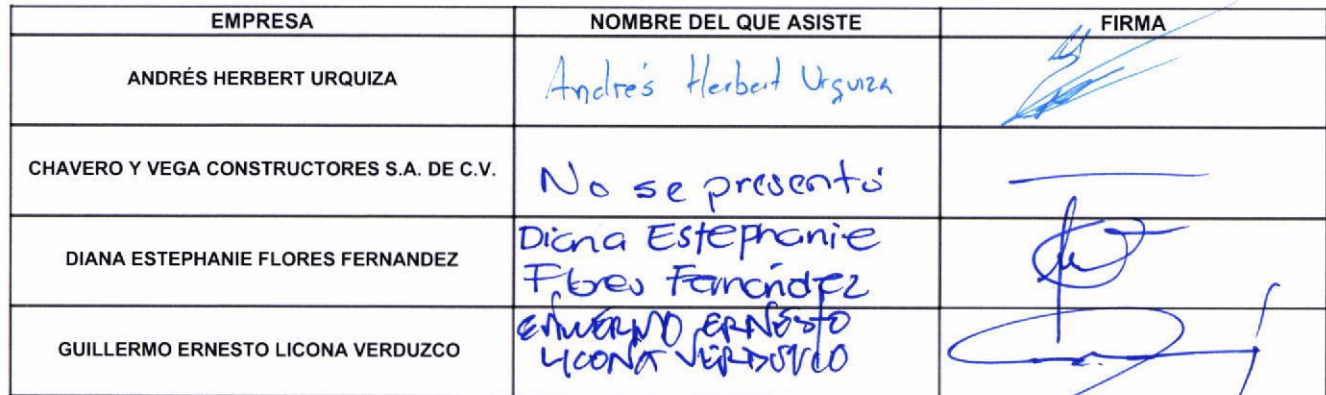 EMPRESA NOMBRE DEL QUE ASISTE FIRMA
ANDRÉS HERBERT URQUIZA Andrés Herbert Urquiza
CHAVERO Y VEGA CONSTRUCTORES S.A. DE C.V. No se presentó
DIANA ESTEPHANIE FLORES FERNANDEZ Diana Estephanie
Flores Fernández
GUILLERMO ERNESTO LICONA VERDUZCO GUILLERMO ERNESTO
LICONA VERDUZCO